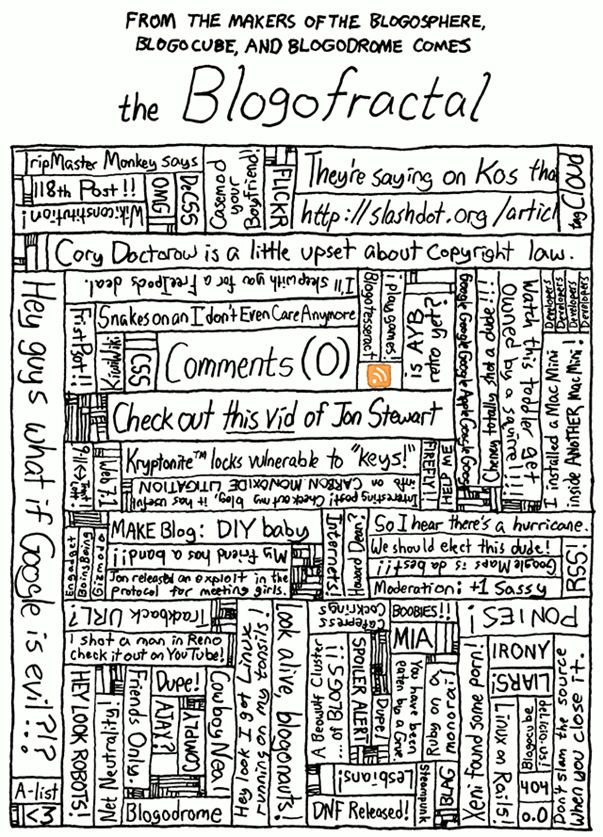 FROM THE MAKERS OF THE BLOGOSPHERE,
BLOGOCUBE, AND BLOGODROME COMES
the Blogofractal
TripMaster Monkey says
118th Post!!
Wikiconstitution!
OMG
DeCSS
Casemod your Boyfriend!
FLICKR
They're saying on Kos tha
http://slashdot.org/articl
tag Cloud
Cory Doctorow is a little upset about copyright law.
Hey guys what if Google is evil?!?
I'll sleep with you for a FreeIpods deal.
Snakes on an I don't Even Care Anymore
First Psot!!
CSS
Comments (0)
Blogotesseract
i play games!
is AYB retro yet?
Google Google Google Apple Google Goog
Cheney totally shot a dude!!!
Watch this toddler get
Owned by a squirrel!!!
Developers
Developers
Developers
Developers
I installed a Mac Mini
inside ANOTHER Mac Mini!
Check out this vid of Jon Stewart
Web 7.1
Kryptonite™ locks vulnerable to "keys!"
Interesting post! Check out my blog, it has useful
info on CARBON MONOXIDE LITIGATION
FIREFLY!!
HELP ME
Engadget
BoingBoing
Gizmodo
MAKE Blog: DIY baby
My friend has a band!!
Jon released an exploit in the
protocol for meeting girls.
Internets!
Howard Dean?
So I hear there's a hurricane.
We should elect this dude!
Google Maps is da best!!
Moderation: +1 Sassy
RSS!
Trackback URL?
I shot a man in Reno
check it out on YouTube!
HEY LOOK ROBOTS!
Net Neutrality!
Friends Only.
Dupe!
AJAX?
COMPLY
Cowboy Neal
Blogodrome
Hey look I got Linux
running on my tonsils!
Look alive, blogonauts!
Cafepress
Cockrings
BOOBIES!!
MIA
A Beowulf Cluster
... of BLOGS!!
SPOILER ALERT!
Dupe!
You have been
eaten by a Grue
Ruby on a
monorail
Lesbians!
DNF Released!
Steampunk
BLAG
PONIES!
Xeni found some porn!
IRONY
LIARS!
Linux on Rails!
Blogonube
del.icio.us!
404
0.0
Don't slam the source
when you close it.
A-list
<3